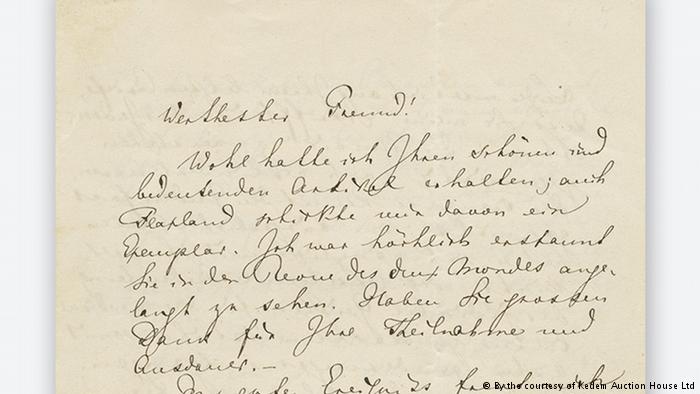 Werthester Freund!
Wohl hatte ich Ihren schönen und
bedeutenden Artikel erhalten; auch
Flaxland schickte mir davon ein
Exemplar. Ich war höchlich erstaunt
Sie in der Revue des deux Mondes ange-
langt zu sehen. Haben Sie grossen
Dank für Ihre Theilnahme und
Ausdauer. –
Ereigniss
© By the courtesy of Kedem Auction House Ltd